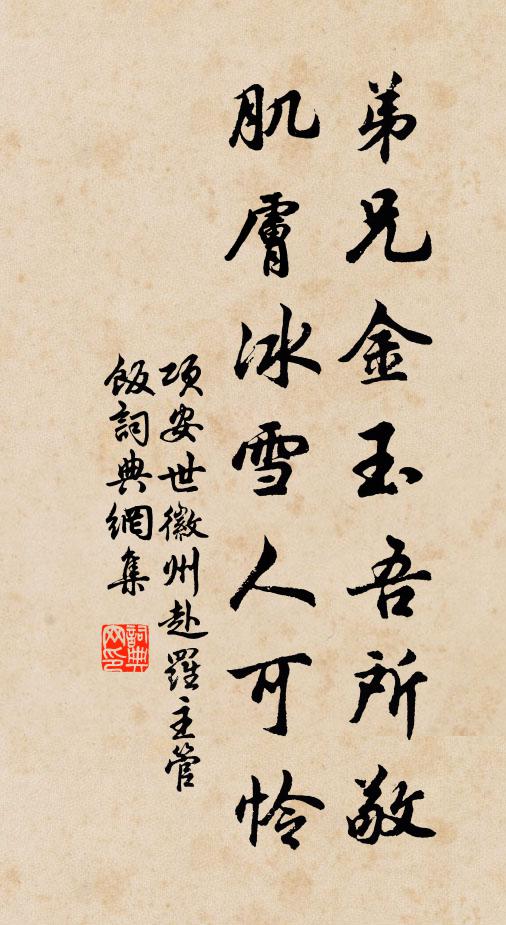 弟兄金玉吾所敬
肌膚冰雪人可怜
項安世徽州赴羅主管
飯詞典網集
詞典網印